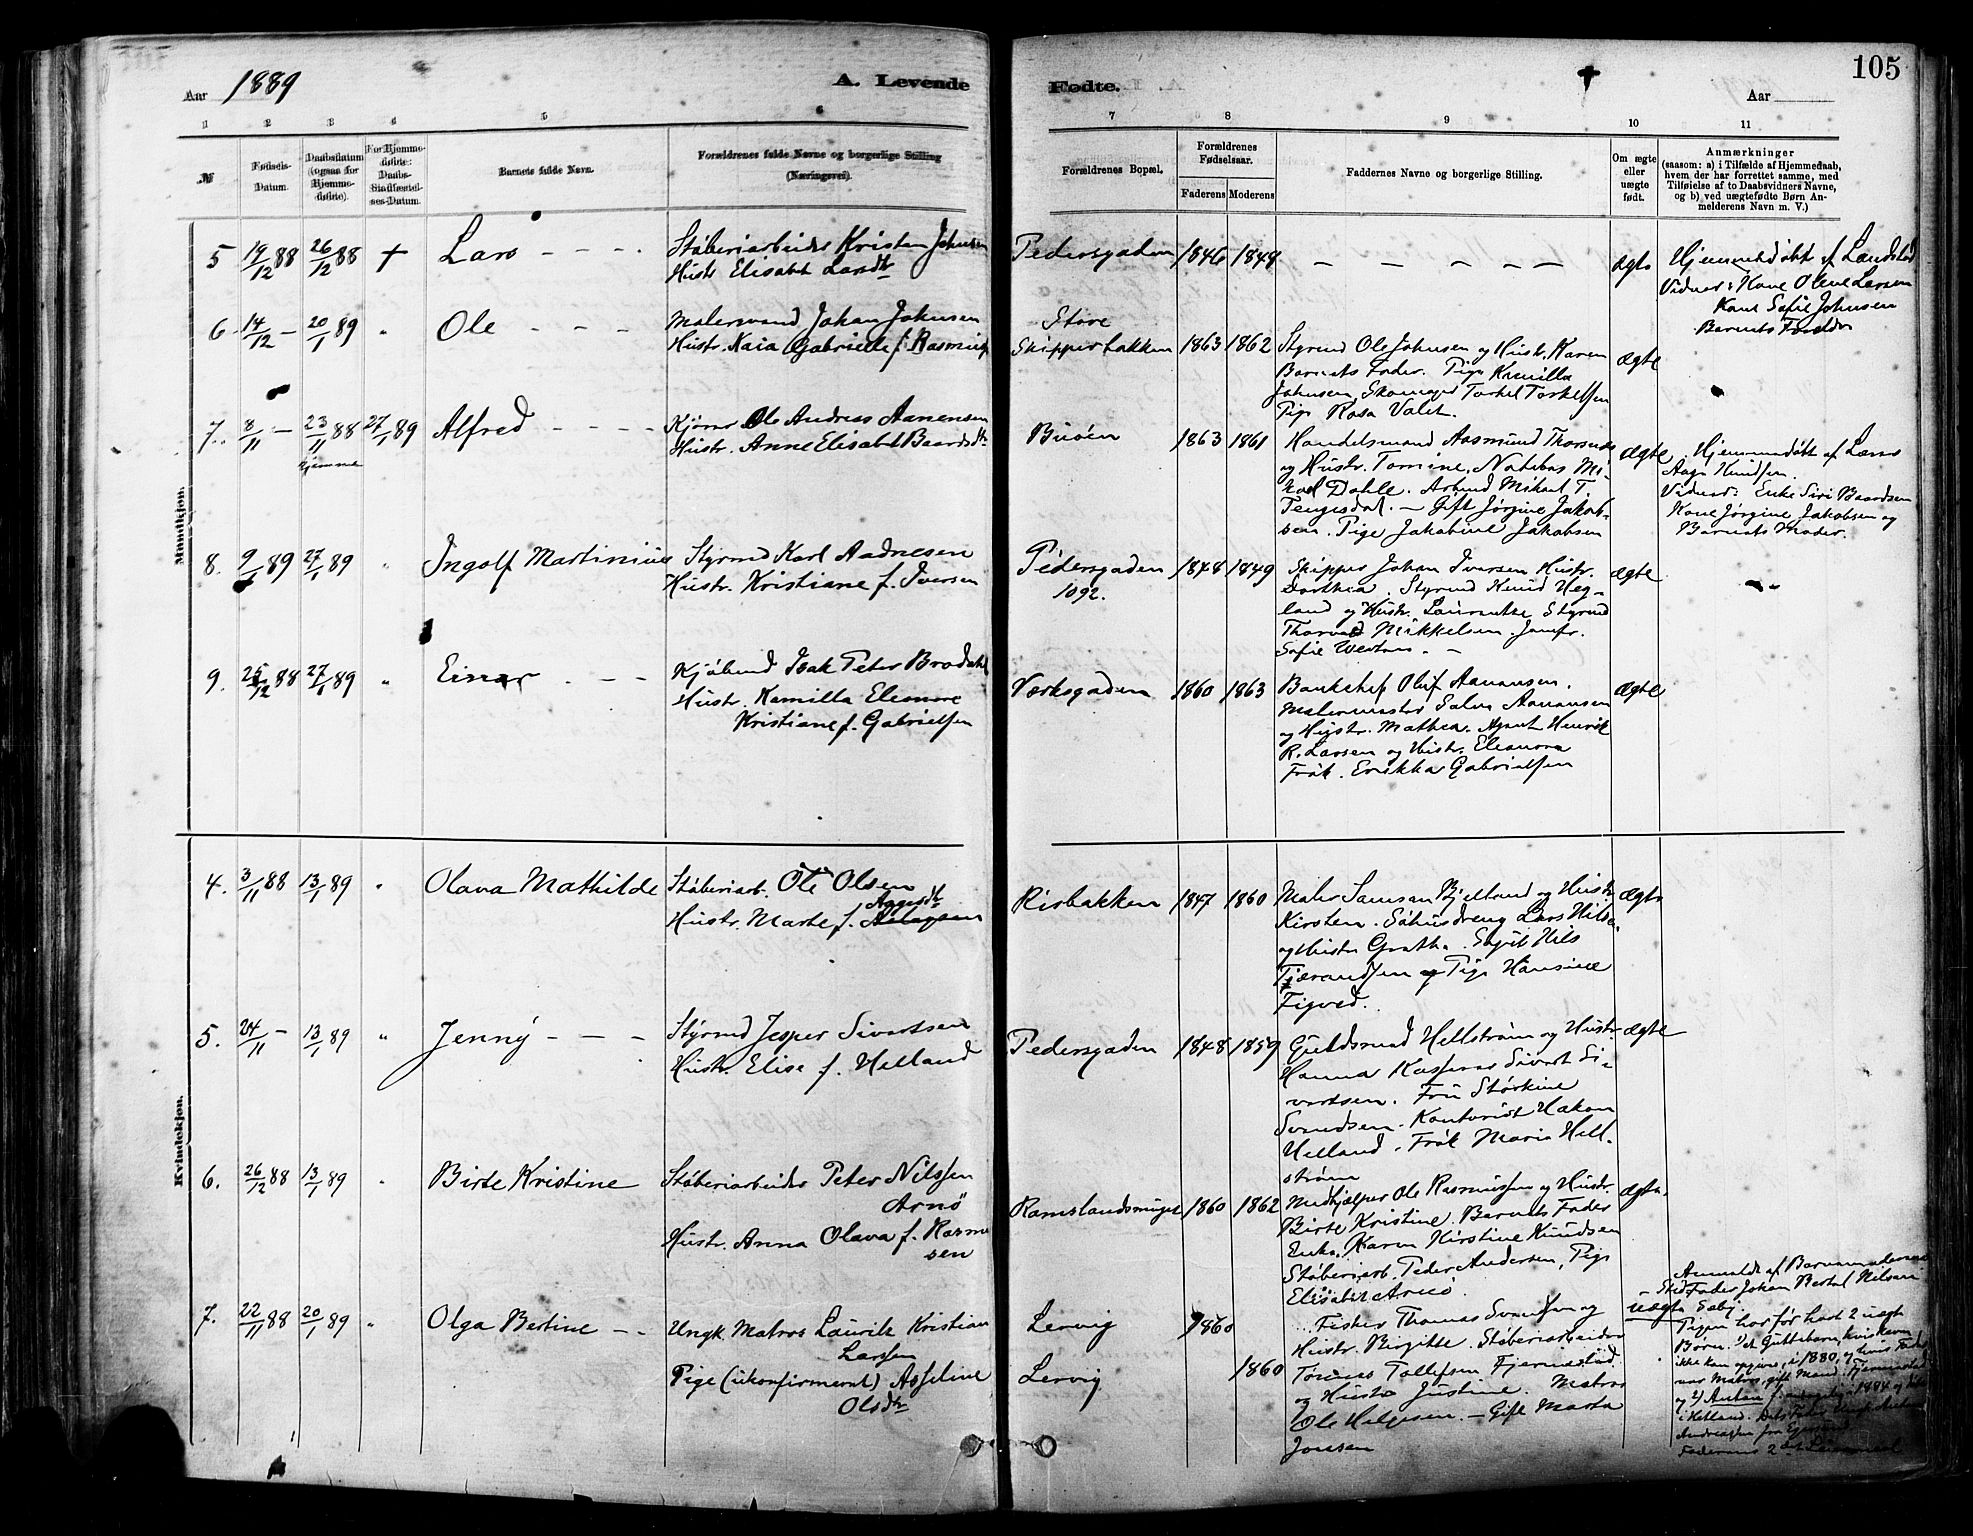 Aar 1889
A. Levende
Fødte.
105
Aar
1 2 3 4 5 6 7 8 9 10 11
№
Fødsels-Datum.
Daabsdatum (ogsaa for Hjemmedøbte).
For Hjemmedøbte: Daabs-Stadfæstelses-Datum.
Barnets fulde Navn.
Forældrenes fulde Navne og borgerlige Stilling (Næringsvei).
Forældrenes Bopæl.
Forældrenes Fødselsaar.
Faderens Moderens
Faddernes Navne og borgerlige Stilling.
Om ægte eller uægte født.
Anmærkninger
(saasom: a) i Tilfælde af Hjemmedaab,
hvem der har forrettet samme, med
Tilføielse af to Daabsvidners Navne,
og b) ved uægtefødte Børn An-
melderens Navn m. V.)
Mandkjøn.
5 19/12 88 26/12 88 + Lars - - -
Støberiarbeider Kristen Johnsen
Hustr Elisabet Larsdtr
Pedersgaden 1846 1848 — — — — — ægte
Hjemmedøbt af Landstad
Vidner: Kone Olene Larsen
Kone Sofie Johnsen
Barnets Forældr
6 14/12 - 20/1 89 " Ole - - -
Malersvend Johan Johnsen
Hustr. Kaia Gabrielle f. Rasmus
Store
Skipperbakken 1863 1862
Styrmd Ole Johnsen og Hustr. Karen
Barnets Fader. Pige Kamilla
Johnsen, Skomager Torkel Torkelsen
Pige Rosa Valet.
ægte
7. 8/11 - 23/11 88 27/1 89 Alfred - - - -
hjemme
Kjører Ole Andreas Aanensen
Hustr. Anne Elisabet Baardsdtr
Buøen 1863 1861
Handelsmand Aasmund Thorsnæs
og Hustr. Tomine,
Dahle. Arbmd Mikael T.
Tengesdal. — Gift Jørgine Jakob-
sen. Pige Jakobine Jakobsen
ægte
Hjemmedøbt af Lærer
Aage Knudsen
Vidner: Enke Siri Baardsen
Kone Jørgine Jakobsen og
Barnets Moder.
8. 9/1 89 27/1 89 " Ingolf Martinius
Styrmd Karl Aadnesen
Hustr. Kristiane f. Iversen
Pedersgaden 1848 1849
1092.
Skipper Johan Iversen Hustr.
Dorthea. Styrmd Knud Heg-
land og Hustr. Laurentse Styrmd
Thorvald Mikkelsen. Jomfr.
Sofie
ægte
9. 25/12 88 27/1 89 " Einar - - -
Kjøbmd Isak Peter Brodahl
Hustr. Kamilla Eleonore
Kristiane f. Gabrielsen
Værksgaden 1860 1863
Bankchef Oluf Aanensen.
Malermester Salve Aanensen
og Hustr. Mathea. Agent Henrik
R. Larsen og Hustr. Eleanora
Frøk. Erikka Gabrielsen
ægte
Kvindekjøn.
4. 3/11 88 13/1 89 " Olava Mathilde
Støberiarb. Ole Olsen
Aagesdtr
Hustr. Marte f.
Risbakken 1847 1860
Maler Samson Bjelland og Hustr.
Kirsten. Lars Nilsen
og Hustr Grethe. Nils
Tjerandsen og Pige Hansine
Figved.
ægte
5. 24/11 - 13/1 89 " Jenny - - -
Styrmd Jesper Sivertsen
Hustr. Elise f. Helland
Pedersgaden 1848 1859
Guldsmed Hellstrøm og Hustr.
Hanna Kasserer Sivert Si-
vertsen. Fru Størkine
Svendsen. Kontorist Hakon
Helland. Frøk Maria Hell-
strøm
ægte
6. 26/12 88 13/1 89 " Birte Kristine
Støberiarbeider Peter Nilssen
Arnø
Hustr. Anna Olava f. Rasmu
sen
Ramslandsmuget 1860 1862
Medhjælper Ole Rasmussen og Hustr.
Birte Kristine. Barnets Fader
Enke. Karen Kirstine Knudsen
Støberiarb. Peder Andersen, Pige
Elisabet Arnø.
ægte
7. 22/11 88 20/1 89 " Olga Bertine - -
Ungk. Matros Lauritz Kristian
Larssen
Pige (ukonfirmeret) Asseline
Olsdtr
Lervig 1860
Lervig 1860
Fisker Thomas Svendsen og
Hustr. Birgitte. Støberiarbeider
Tønnes Tollefsen Fjermestad.
og Hustr Justine. Matros
Ole Helgesen. — Gift Marta
Jonsen
uægte
Anmeldt af Barnemoderens
Stedfader Johan Bertal Nilsen
Pigen har før havt 2 uægte
Børn. 1) et Guttebarn, hvis Navn
ikke kan opgives, i 1880, og hvis Fader
var Matros, gift Mand, Fjermestad
og 2) Anton f. 1884
i Hetland.